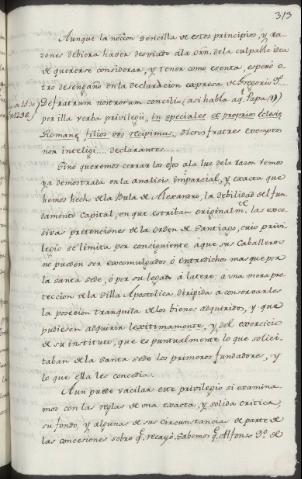 313
Aunque la nocion sencilla de estos principios, y ra-
zones debiera haver desviado dha orn. de la culpable idea
de quererse considerar, y tener como esenta, esperó o-
tro desengaño en la declaracion expresa de Gregorio
De fratrum nostrorum consilio (asi habla aq.l Papa)
per illa verba privilegii, in speciales et proprios Ecclesiæ
Romanæ filios vos recipimus, dictos fratres exemptos
non intelligi... declarantes...
Sinó queremos cerrar los ojos á la luz de la razon temos
ya demostrada en la analisis imparcial, y exacta que
hemos hech de la Bula de Alexandro, la debilidad del fun-
damento capital, en que estriban originalm.te las exce-
sivas pretenciones de la Orden de Santiago, cuio privi-
legio se limita por consiguiente á que sus Caballeros
no puedan ser excomulgados ó entredichos mas que por
la santa sede, ó por su legado á latere, á una mera pro-
teccion de la Silla Apostolica, dirigida á conservarles
la posecion tranquila de los bienes adquiridos, y que
pudiesen adquirir legitimamente, y del exercicio
de su instituto, que es puntualmente lo que solici-
taban de la santa sede los primeros fundadores, y
lo que ella les concedia.
Aun puede vacilar este privilegio si examina-
mos con las reglas de una exacta, y solida critica,
su fondo, y algunas de sus circunstancias de parte de
las concesiones sobre q.e recayó. Sabemos q.e Alfonso 9.º de